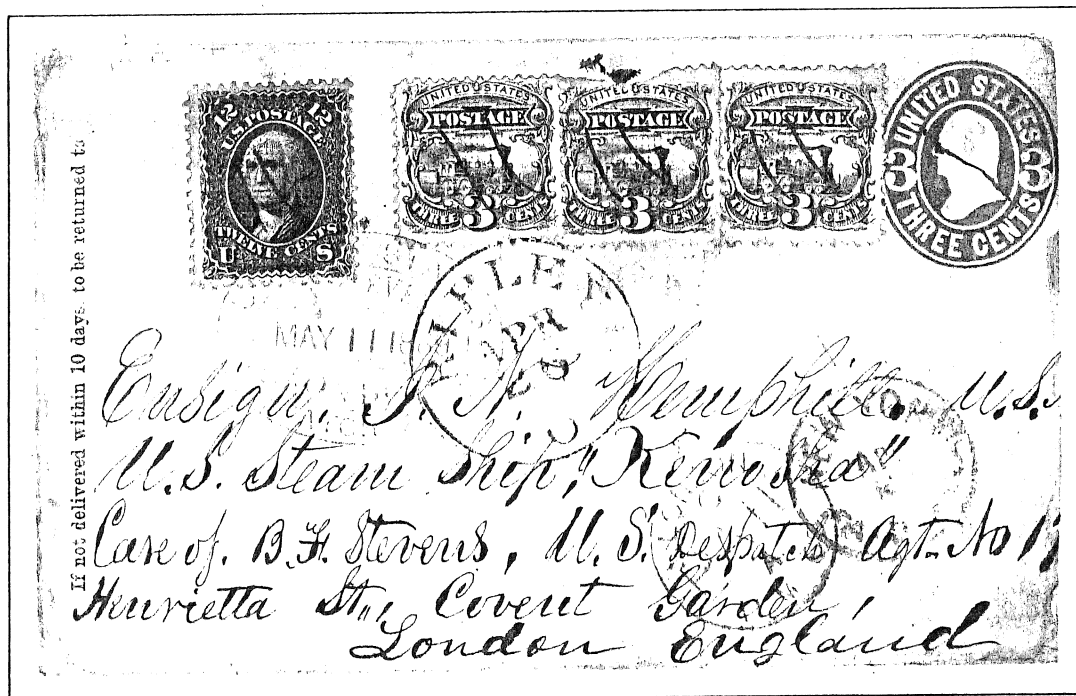 If not delivered within 10 days, to be returned to
12 12
U.S. POSTAGE
TWELVE CENTS
U S
UNITED STATES
POSTAGE
THREE 3 CENTS
UNITED STATES
POSTAGE
THREE 3 CENTS
UNITED STATES
POSTAGE
THREE 3 CENTS
UNITED STATES
3 3
THREE CENTS
RIPLEY
APR
MAY 11
NEW YORK
Ensign, J. N. Hemphill, U.S.
U.S. Steam Ship, "Kenosha"
Care of. B. F. Stevens, U. S. Despatch Agt. No 17
Henrietta St., Covent Garden,
London England